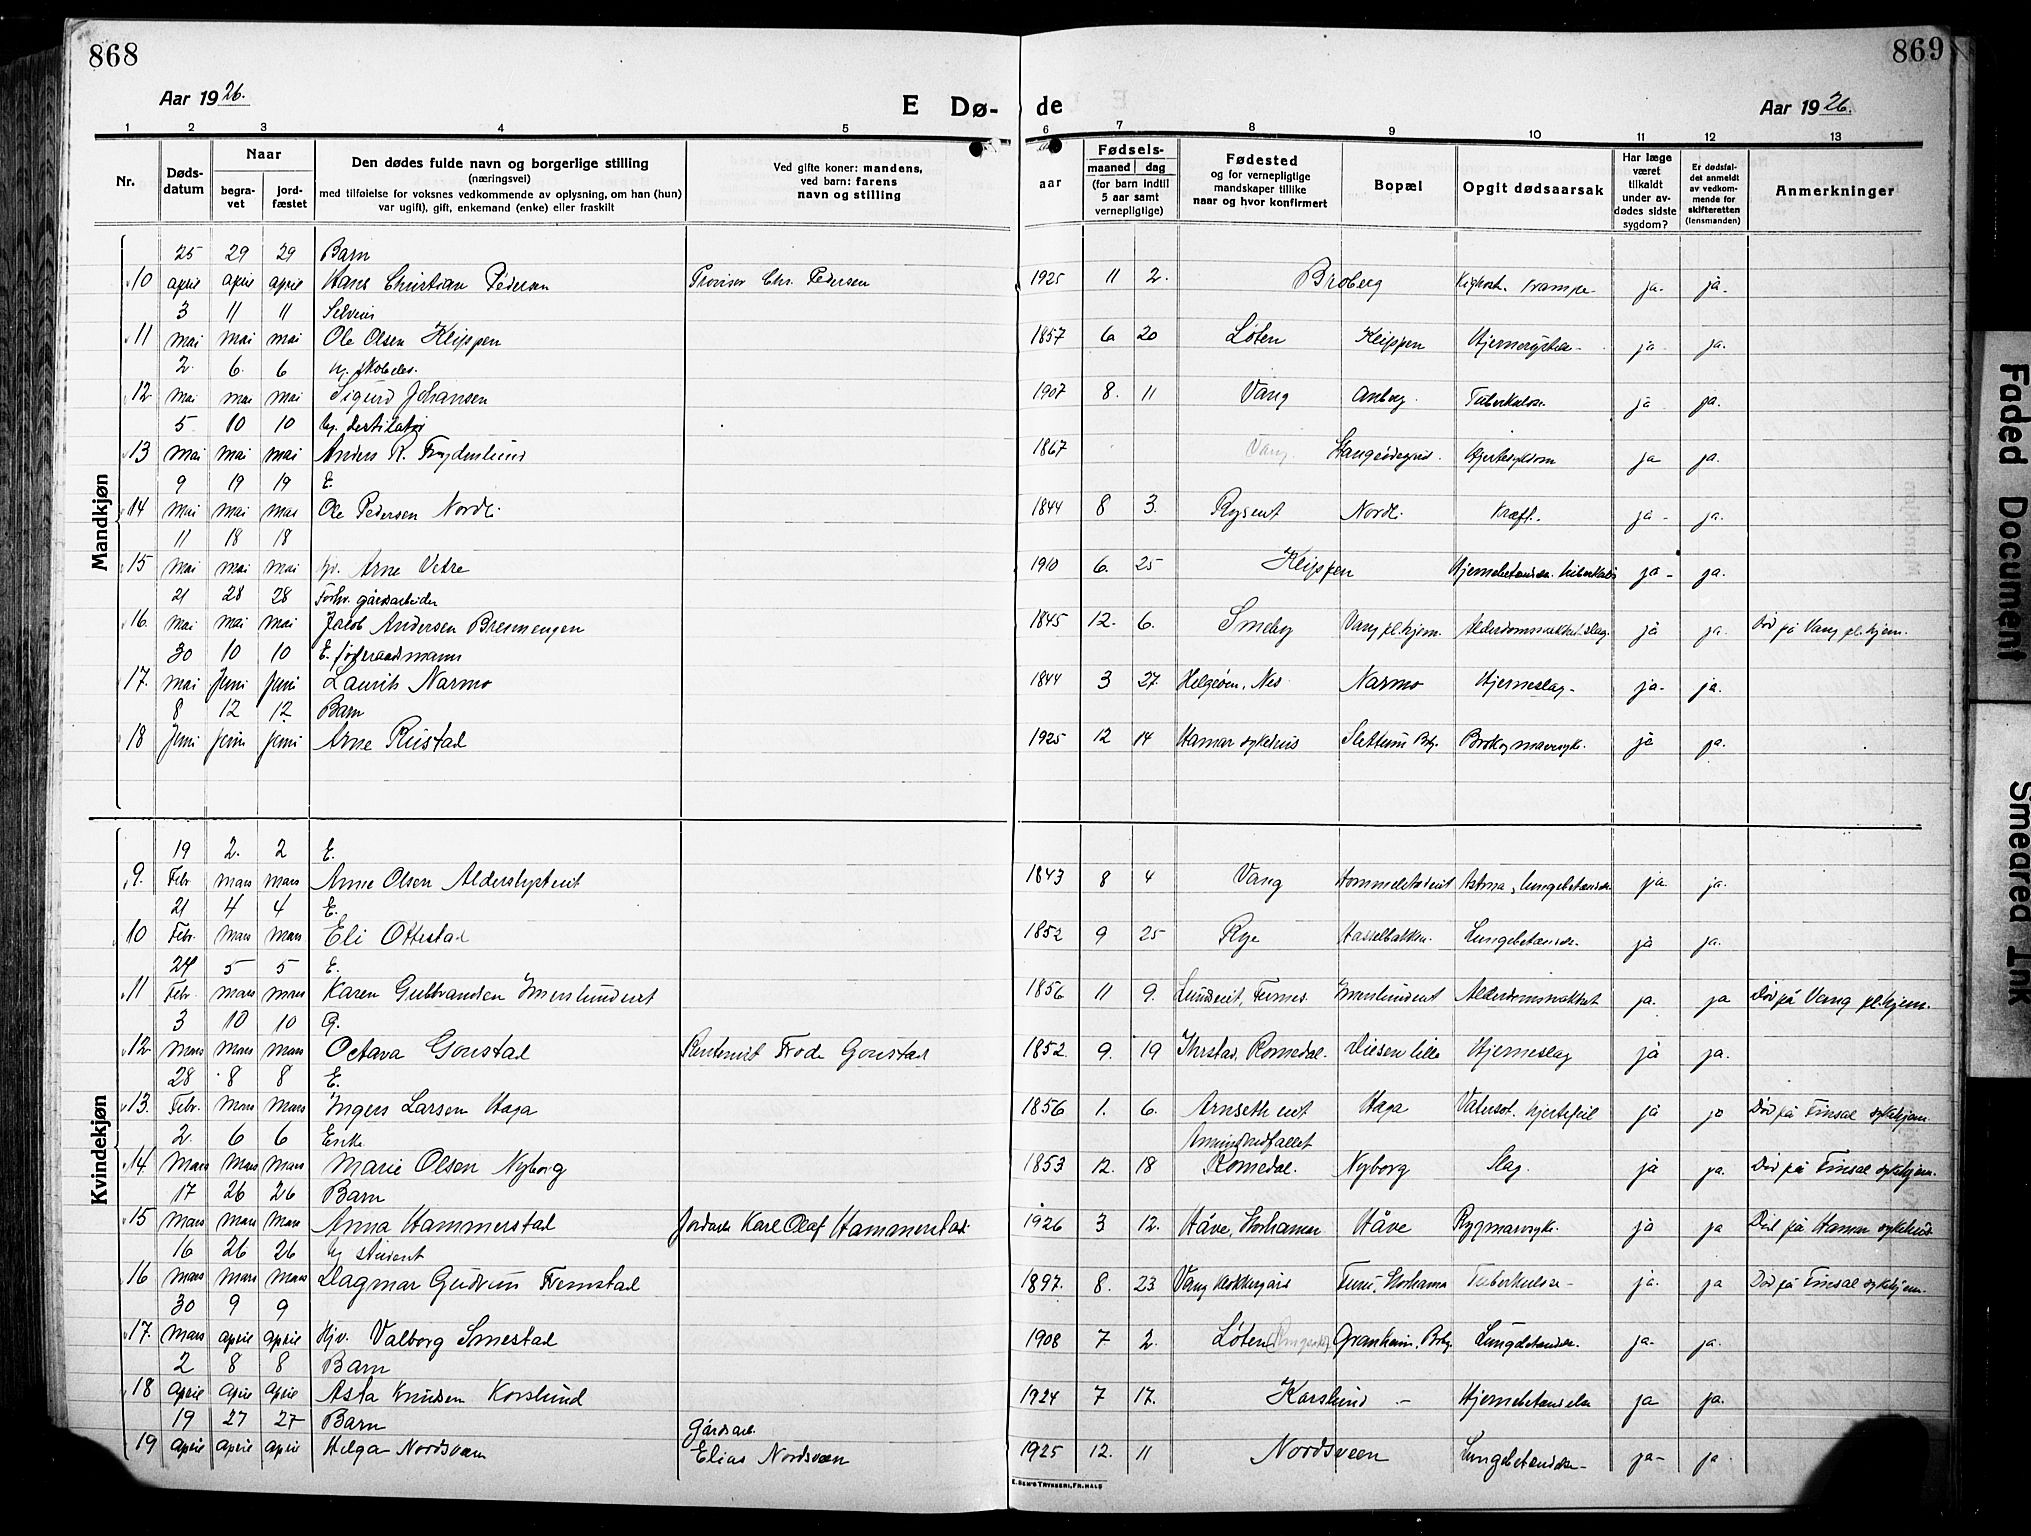 868
869
Aar 1926.
E Dø-
de
Aar 1926.
1 2 3 4 5 6 7 8 9 10 11 12 13
Nr.
Dødsdatum
Naar
begravet
jordfæstet
Den dødes fulde navn og borgerlige stilling
(næringsvei)
med tilføielse for voksnes vedkommende av oplysning, om han (hun)
var ugift), gift, enkemand (enke) eller fraskilt
Ved gifte koner: mandens,
ved barn: farens
navn og stilling
Fødsels-
aar
maaned dag
(for barn indtil
5 aar samt
vernepligtige)
Fødested
og for vernepligtige
mandskaper tillike
naar og hvor konfirmert
Bopæl
Opgit dødsaarsak
Har læge
været
tilkaldt
under avdødes
sidste
sygdom?
Er dødsfaldet
anmeldt
av vedkommende
for
skifteretten
(lensmanden)
Anmerkninger
Mandkjøn
25 29 29 Barn
10 april april april Hans Christian Pedersen Provisor Chr. Pedersen 1925 11 2. Broberg Kighost. krampe ja. ja.
3 11 11 Selveier
11 mai mai mai Ole Olsen Kleppen 1857 6 20 Løten Kleppen ja ja.
2. 6. 6
12 mai mai mai Sigurd Johansen 1907 8. 11 Vang Tuberkulose ja ja.
5 10 10 Ug. destilatør
13 mai mai mai Anders R. Frydenlund 1867 Vang Hjertesykdom ja ja.
9 19 19 E.
14 mai mai mai Ole Pedersen Nordli 1844 8 3. Nordli Kræft. ja - ja.
11 18 18
15 mai mai mai Arne Vetre 1910 6. 25 Kleppen Hjernebetændelse. tuberkuløs ja - ja.
21 28 28 Forhv. gårdsarbeider
16. mai mai mai Jakob Andersen Bresmengen 1845 12. 6. Smeby Vang pl.hjem. Alderdomssvakhet. slag. ja ja. Død på Vang pl. hjem.
30 10 10 E. føderaadsmann
17. mai Juni Juni Laurits Narmo 1844 3 27. Helgøen, Nes Narmo Hjerneslag - ja - ja.
8 12 12 Barn
18 Juni juni juni Arne Rustad 1925 12 14 Hamar sykehus Slettum ja ja.
Kvindekjøn
19 2. 2 E.
9. Febr mars mars Anne Olsen Alderslyst 1843 8 4 Vang Astma, lungebetændelse ja ja.
21 4 4 E.
10 Febr. mars mars Eli Ottestad 1852 9 25 Rye Hasselbakken. Lungebetændelse ja ja.
24 5 5 E.
11 Febr. mars mars Karen Gulbrandsen Imerslundeiet 1856 11 9. Furnes Imerslundeiet Alderdomssvakhet ja. ja Død på Vang pl.hjem.
3 10 10 G.
12 mars mars mars Octava Gonstad Rentenist Frode Gonstad 1852. 9. 19 Romedal. lille Hjerneslag ja ja.
28 8 8 E.
13. Febr. mars mars Inger Larsen Haga 1856 1. 6. Haga Vatersot. hjertefeil ja ja Død på Finsal sykehjem.
2. 6 6 Enke
14. mars mars mars Marie Olsen Nyborg 1853 12. 18 Romedal. Nyborg Slag. ja ja. Død på Finsal sykehjem.
17 26 26 Barn
15 mars mars mars Anna Hammerstad Jordarb. Karl Olaf Hammerstad 1926 3 12. Håve, Storhamar Håve ja ja Død på Hamar sykehus
16 26 26 Ug student
16 mars mars mars Dagmar Gudrun Fremstad 1897. 8. 23 Vang klokkergård Storhamar Tuberkulose - ja. ja Død på Finsal sykehjem.
30 9 9
17. mars april april Hjv. Valborg Smestad 1908 7 2. Løten Granheim, Brbg. Lungebetændelse ja - ja.
2 8 8 Barn
18 april april april Asta Knudsen Korslund 1924 7 17. Korslund - Hjernebetændelse ja ja.
19 27 27 Barn Gårdsarb.
19 april april april Helga Nordsveen Elias Nordsveen 1925 12. 11 Nordsveen Lungebetændelse - ja - ja.
E. SEM'S TRYKKERI, FR.HALD
Faded Document
Smeared Ink